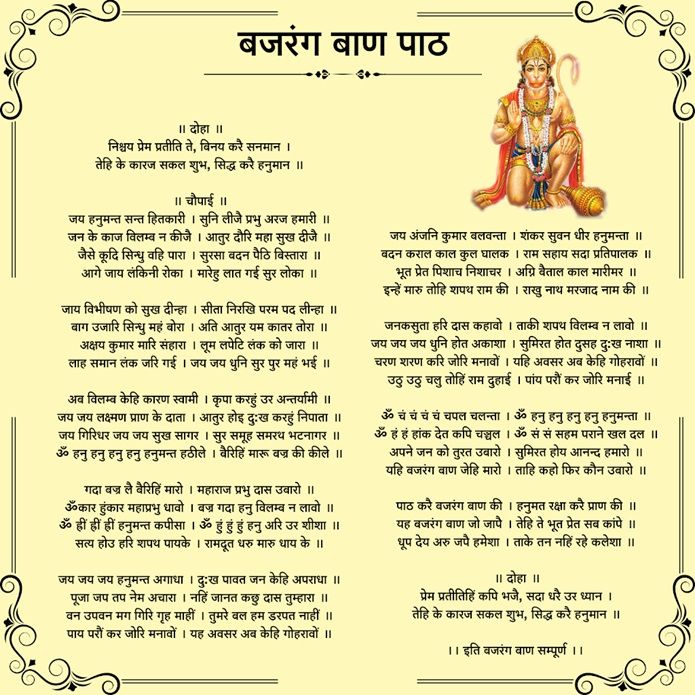 बजरंग बाण पाठ
॥ दोहा ॥
निश्चय प्रेम प्रतीति ते, विनय करै सनमान ।
तेहि के कारज सकल शुभ, सिद्ध करै हनुमान ॥
॥ चौपाई ॥
जय हनुमन्त सन्त हितकारी । सुनि लीजै प्रभु अरज हमारी ॥
जन के काज विलम्ब न कीजै । आतुर दौरि महा सुख दीजै ॥
जैसे कूदि सिन्धु वहि पारा । सुरसा बदन पैठि बिस्तारा ॥
आगे जाय लंकिनी रोका । मारेहु लात गई सुर लोका ॥
जाय विभीषण को सुख दीन्हा । सीता निरखि परम पद लीन्हा ॥
बाग उजारि सिन्धु महं बोरा । अति आतुर यम कातर तोरा ॥
अक्षय कुमार मारि संहारा । लूम लपेटि लंक को जारा ॥
लाह समान लंक जरि गई । जय जय धुनि सुर पुर महं भई ॥
अब विलम्ब केहि कारण स्वामी । कृपा करहुं उर अन्तर्यामी ॥
जय जय लक्ष्मण प्राण के दाता । आतुर होइ दुःख करहुं निपाता ॥
जय गिरिधर जय जय सुख सागर । सुर समूह समरथ भटनागर ॥
ॐ हनु हनु हनु हनु हनुमन्त हठीले । वैरिहिं मारू वज्र की कीले ॥
गदा बज्र लै बैरिहिं मारो । महाराज प्रभु दास उबारो ॥
ॐकार हुंकार महाप्रभु धावो । बज्र गदा हनु विलम्ब न लावो ॥
ॐ ह्रीं ह्रीं ह्रीं हनुमन्त कपीसा । ॐ हुं हुं हुं हनु अरि उर शीशा ॥
सत्य होउ हरि शपथ पायके । रामदूत धरु मारु धाय के ॥
जय जय जय हनुमन्त अगाधा । दुःख पावत जन केहि अपराधा ॥
पूजा जप तप नेम अचारा । नहिं जानत कछु दास तुम्हारा ॥
वन उपवन मग गिरि गृह माहीं । तुमरे बल हम डरपत नाहीं ॥
पाय परौं कर जोरि मनावों । यह अवसर अब केहि गोहरावों ॥
जय अंजनि कुमार बलवन्ता । शंकर सुवन धीर हनुमन्ता ॥
बदन कराल काल कुल घालक । राम सहाय सदा प्रतिपालक ॥
भूत प्रेत पिशाच निशाचर । अग्नि वैताल काल मारीमर ॥
इन्हें मारु तोहि शपथ राम की । राखु नाथ मरजाद नाम की ॥
जनकसुता हरि दास कहावो । ताकी शपथ विलम्ब न लावो ॥
जय जय जय धुनि होत अकाशा । सुमिरत होत दुसह दुःख नाशा ॥
चरण शरण करि जोरि मनावों । यहि अवसर अब केहि गोहरावों ॥
उठु उठु चलु तोहिं राम दुहाई । पांय परौं कर जोरि मनाई ॥
ॐ चं चं चं चं चपल चलन्ता । ॐ हनु हनु हनु हनु हनुमन्ता ॥
ॐ हं हं हांक देत कपि चञ्चल । ॐ सं सं सहम पराने खल दल ॥
अपने जन को तुरत उबारो । सुमिरत होय आनन्द हमारो ॥
यहि बजरंग बाण जेहि मारो । ताहि कहो फिर कौन उबारो ॥
पाठ करै बजरंग बाण की । हनुमत रक्षा करै प्राण की ॥
यह बजरंग बाण जो जापै । तेहि ते भूत प्रेत सब कांपे ॥
धूप देय अरु जपै हमेशा । ताके तन नहिं रहे कलेशा ॥
॥ दोहा ॥
प्रेम प्रतीतिहिं कपि भजै, सदा धरै उर ध्यान ।
तेहि के कारज सकल शुभ, सिद्ध करै हनुमान ॥
।। इति बजरंग बाण सम्पूर्ण ।।